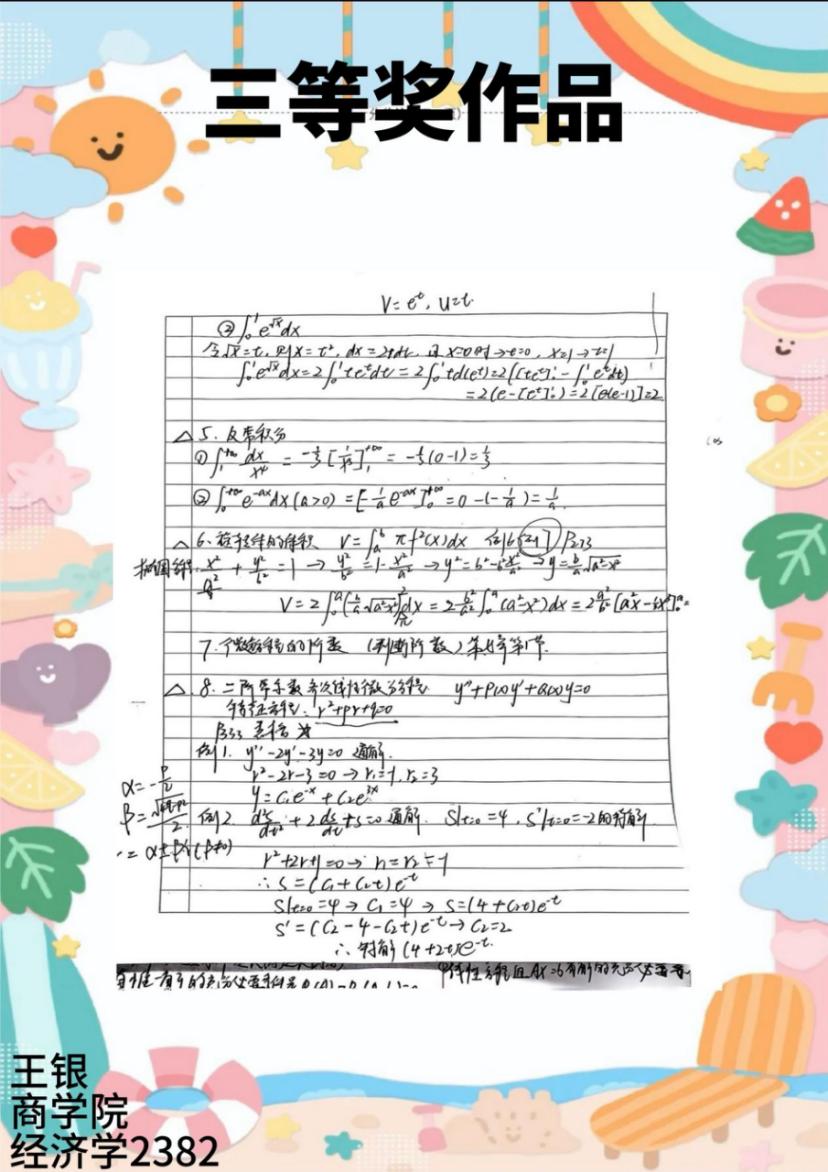 三等奖作品
V=eᵗ, u=t
② ∫₀¹e^√x dx
令√x=t, 则x=t², dx=2tdt, 且x=0时→t=0, x=1→t=1
∫₀¹e^√x dx=2∫₀¹teᵗdt=2∫₀¹td(eᵗ)=2([teᵗ]₀¹-∫₀¹eᵗdt)
=2(e-[eᵗ]₀¹)=2[e-(e-1)]=2
△ 5. 反常积分
① ∫₁^+∞ dx/x⁴ = -1/3[1/x³]₁^+∞ = -1/3(0-1)=1/3
② ∫₀^+∞ e^-ax dx(a>0)=[-1/a e^-ax]₀^+∞=0-(-1/a)=1/a.
△ 6. 旋转体的体积 V=∫ₐᵇπf²(x)dx
椭圆 x²/a²+y²/b²=1→y²/b²=1-x²/a²→y²=b²-b²x²/a²→y=b/a√a²-x²
7. 微分方程的阶数 (判断阶数) 第七章第1节.
△ 8. 二阶常系数齐次线性微分方程 y''+P(x)y'+Q(x)y=0
特征方程: r²+pr+q=0
P333 表格
例1. y''-2y'-3y=0 通解.
r²-2r-3=0→r₁=-1, r₂=3
y=C₁e^-x+C₂e^3x
α=-p/2
例2. d²s/dt²+2ds/dt+s=0 通解. S|t=0=4, S'|t=0=-2的特解.
r²+2r+1=0→r₁=r₂=-1
∴S=(C₁+C₂t)e^-t
S|t=0=4→C₁=4→S=(4+C₂t)e^-t
S'=(C₂-4-C₂t)e^-t→C₂=2
∴特解(4+2t)e^-t.
王银
商学院
经济学2382